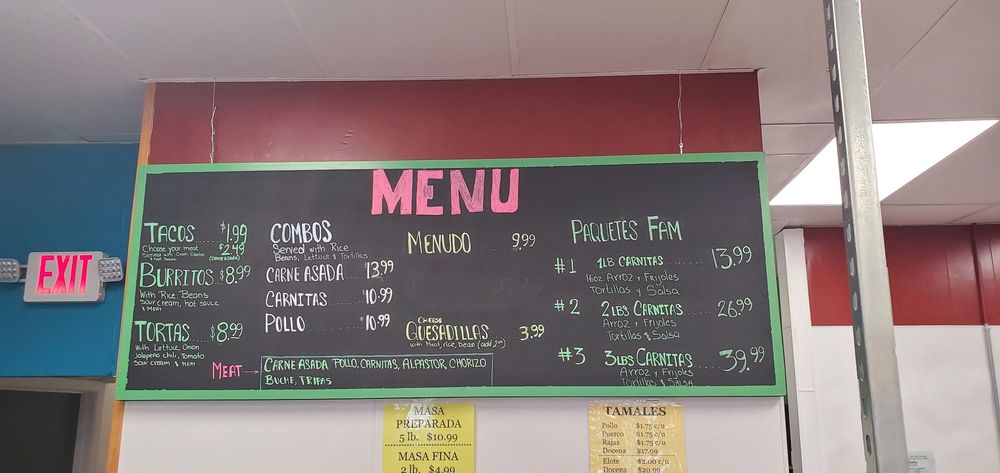 MENU
TACOS $1.99
Choose your meat $2.49
Served with Onion, Cilantro (Carne asada)
& Hot Sauce
BURRITOS $8.99
With Rice, Beans
Sour cream, hot sauce
& MEAT
TORTAS $8.99
with Lettuce, Onion
Jalapeño chili, Tomato
Sour cream & MEAT
COMBOS
Served with Rice
Beans, Lettuce & Tortillas
CARNE ASADA 13.99
CARNITAS 10.99
POLLO 10.99
MEAT → CARNE ASADA POLLO, CARNITAS, ALPASTOR, CHORIZO
BUCHE, TRIPAS
MENUDO 9.99
CHEESE
QUESADILLAS 3.99
with Meat, rice, bean (add 2.00)
PAQUETES FAM
#1 1LB CARNITAS 13.99
16oz ARROZ y FRIJOLES
Tortillas y Salsa
#2 2LBS CARNITAS 26.99
ARROZ y FRIJOLES
Tortillas & Salsa
#3 3LBS CARNITAS 39.99
ARROZ y FRIJOLES
Tortillas & SALSA
EXIT
MASA
PREPARADA
5 lb. $10.99
MASA FINA
2 lb. $4.99
TAMALES
Pollo $1.75 c/u
Puerco $1.75 c/u
Rajas $1.75 c/u
Docena $17.99
Elote $2.00 c/u
Docena $20.99